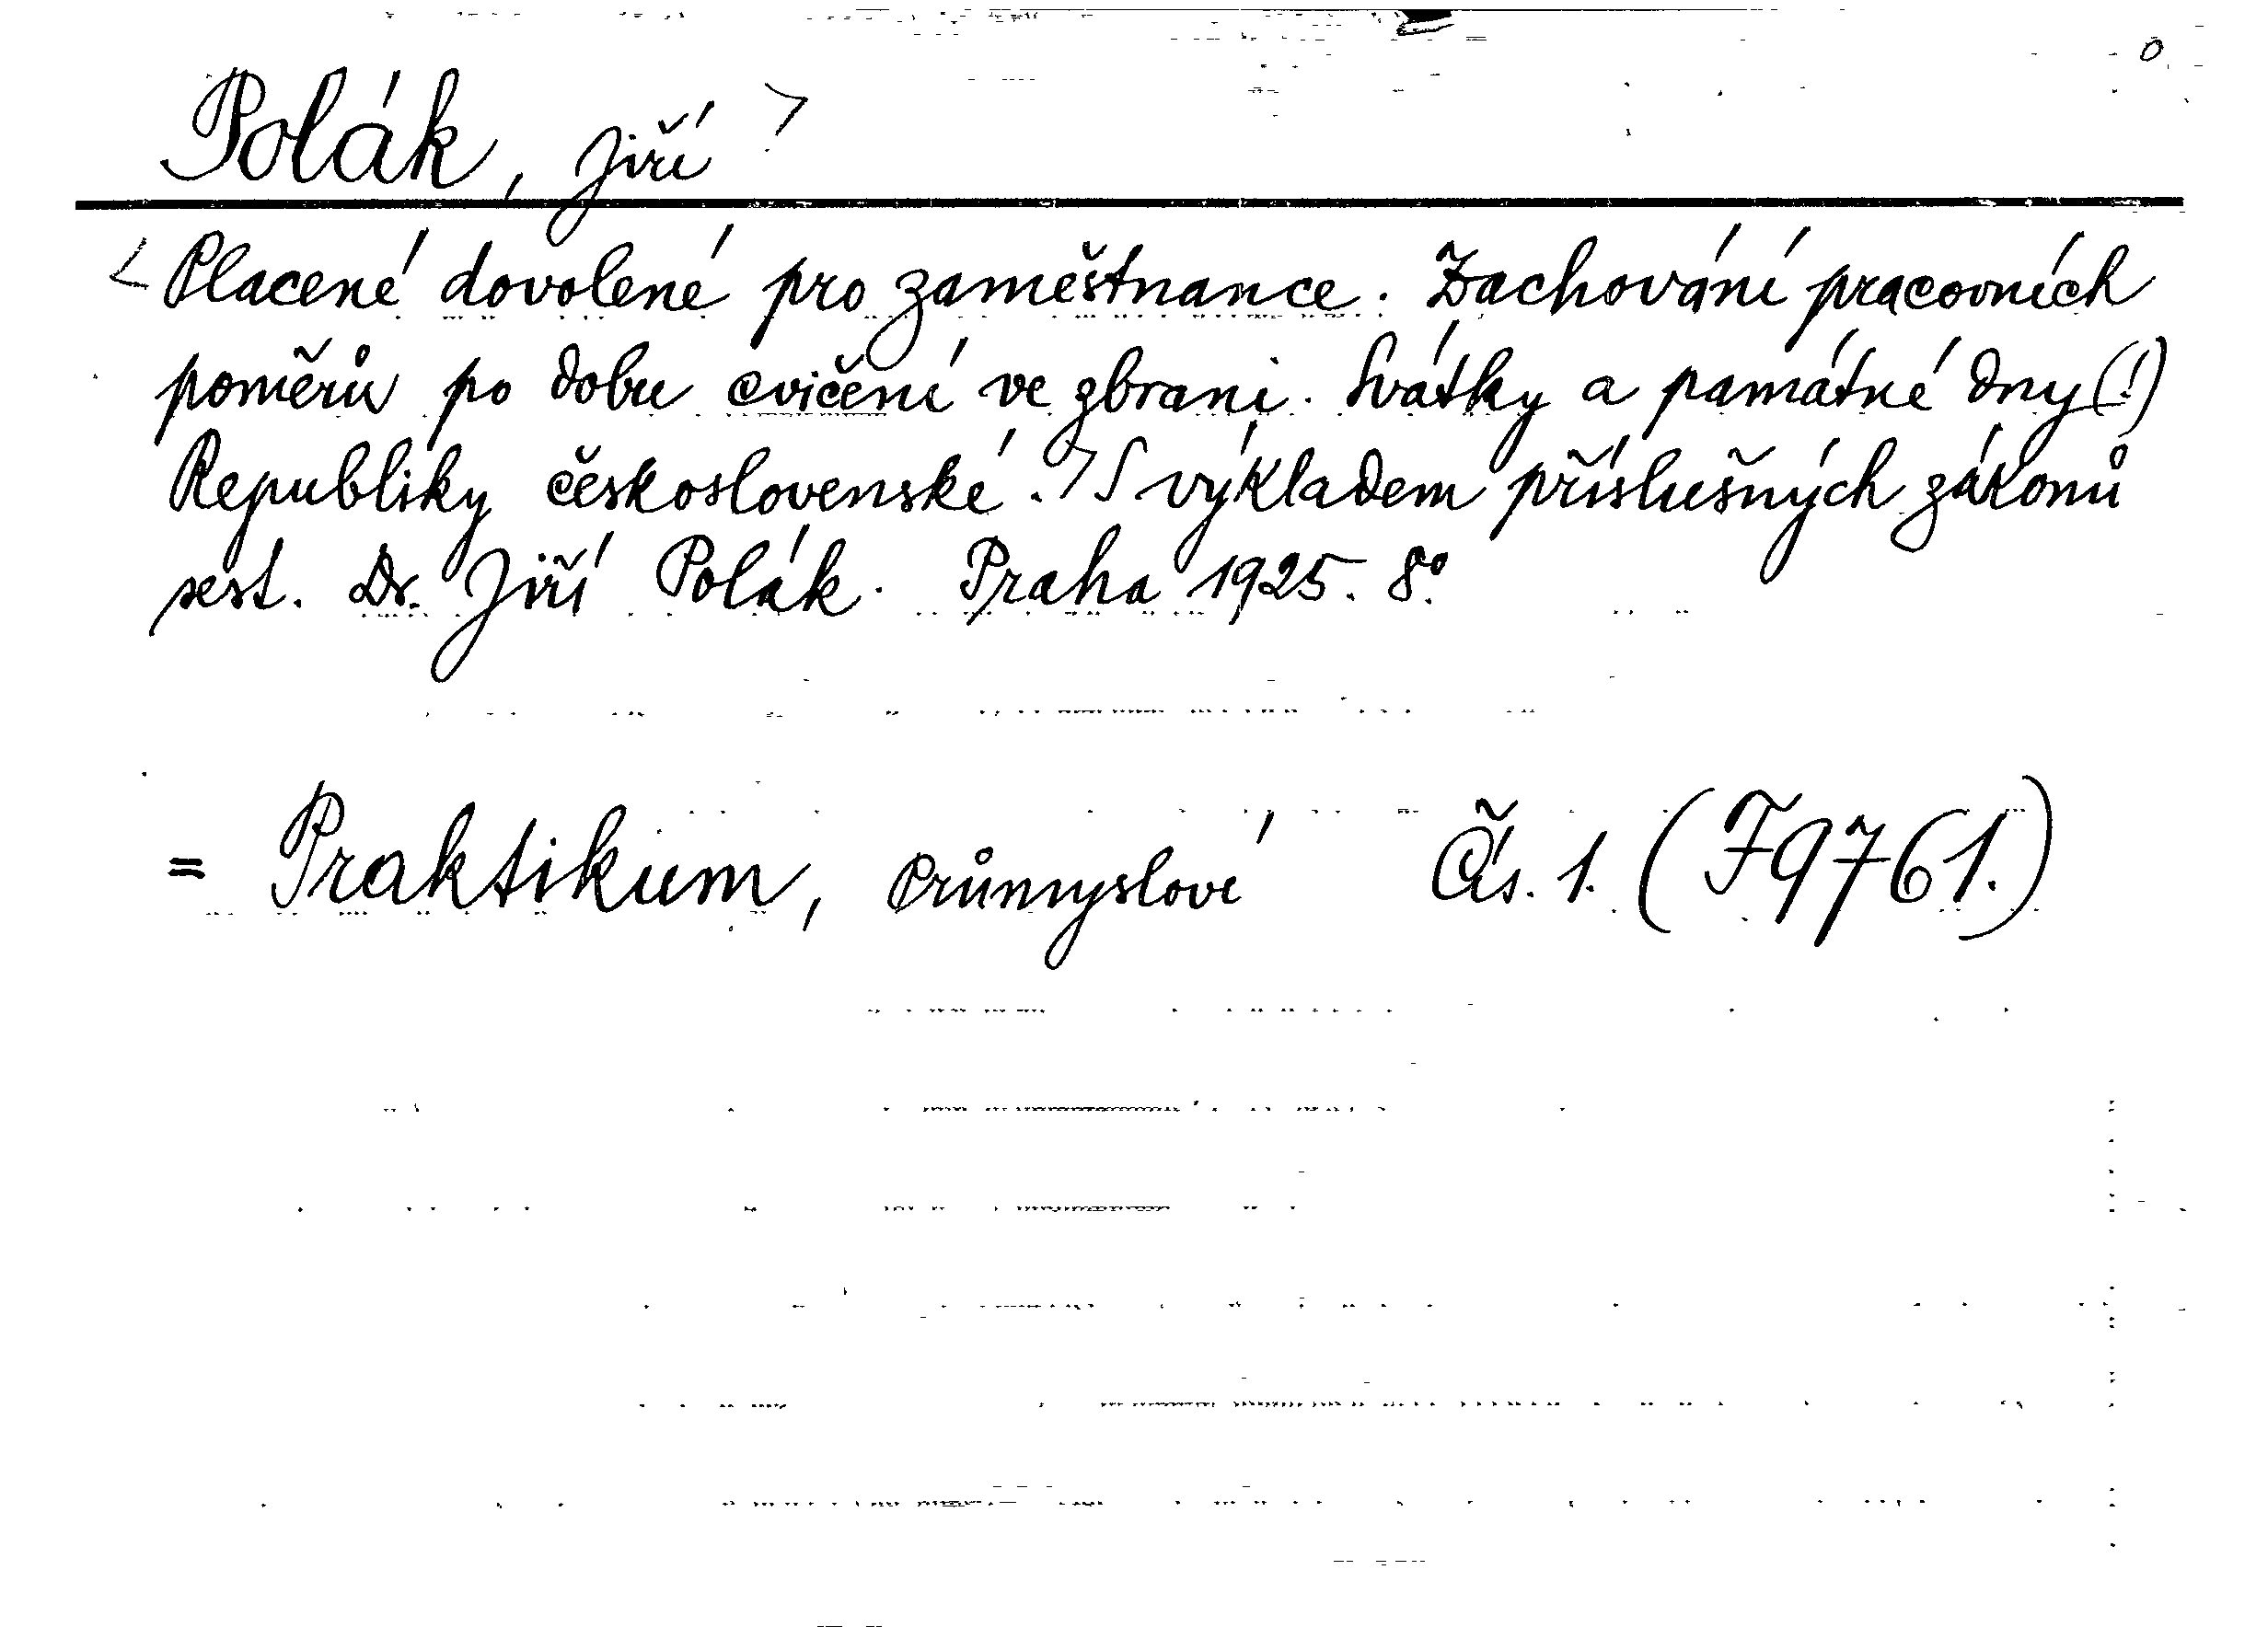 Polák, Jiří >
< Placené dovolené pro zaměstnance. Zachování pracovních
poměrův po dobu cvičení ve zbrani. Svátky a památné dny (!)
Republiky československé. > S výkladem příslušných zákonů
sest. Dr. Jiří Polák. Praha 1925. 8°.
= Praktikum, průmyslové Čís. 1. (F 9761.)